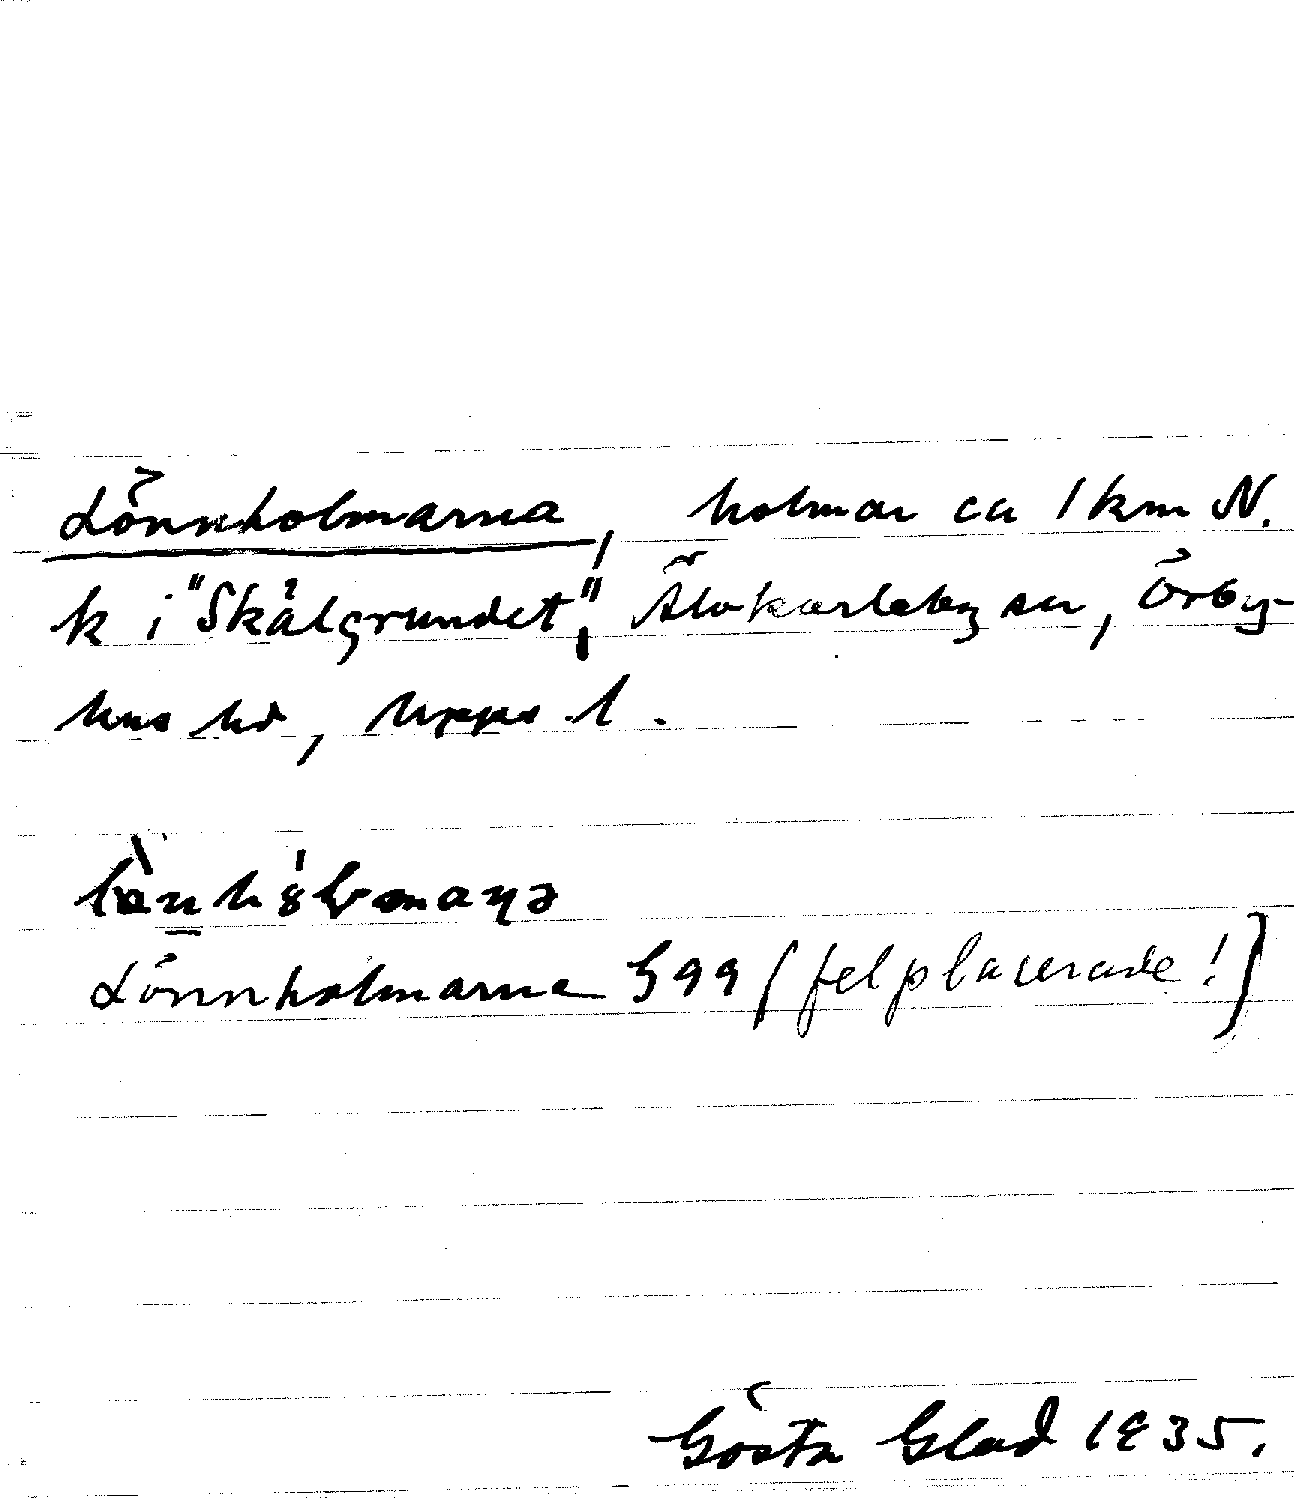 Lönnholmarna, holmar ca 1 km N.
k i "Skålgrundet", Älvkarleby sn, Örby-
hus hd, Upps. l.
Lönnholmarna G99 (felplacerade!)
Gösta Glad 1935.